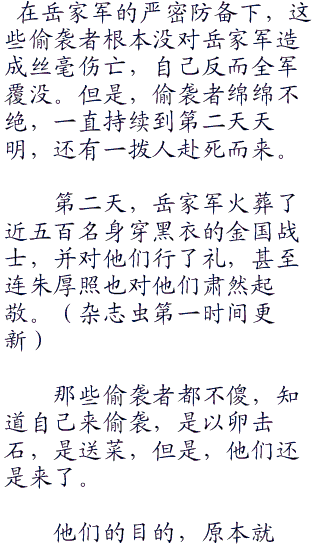 在岳家军的严密防备下，这
些偷袭者根本没对岳家军造
成丝毫伤亡，自己反而全军
覆没。但是，偷袭者绵绵不
绝，一直持续到第二天天
明，还有一拨人赴死而来。
第二天，岳家军火葬了
近五百名身穿黑衣的金国战
士，并对他们行了礼，甚至
连朱厚照也对他们肃然起
敬。（杂志虫第一时间更
新）
那些偷袭者都不傻，知
道自己来偷袭，是以卵击
石，是送菜，但是，他们还
是来了。
他们的目的，原本就